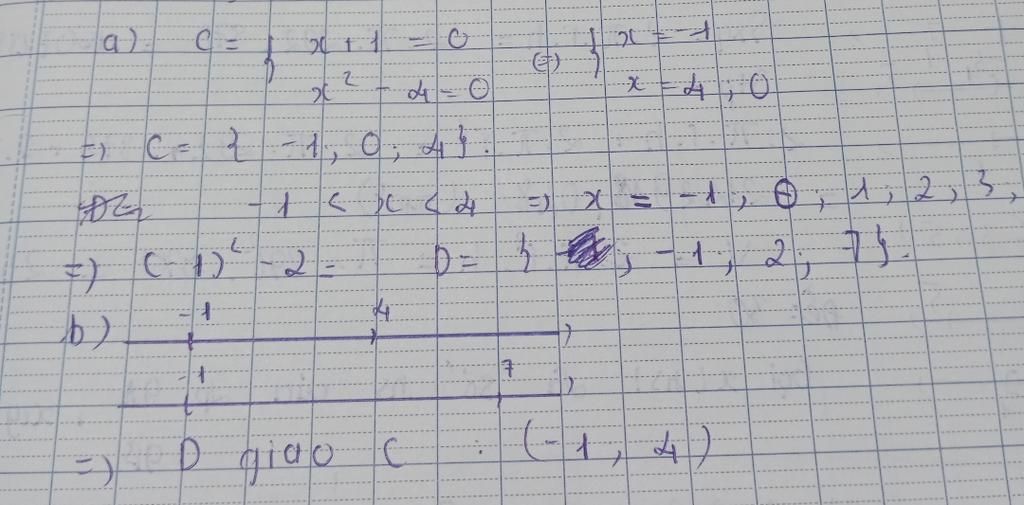 a) C = { x + 1 = 0 (=) { x = -1
x² - 4 = 0 x = 4 ; 0
=) C = { -1 ; 0 ; 4 }.
-1 < x < 4 =) x = -1 ; 0 ; 1 ; 2 ; 3 ,
=) (-1)² - 2 = D = { ; -1 ; 2 ; 7 }.
b) -1 4
-1 7
=) D giao C : (-1, 4)